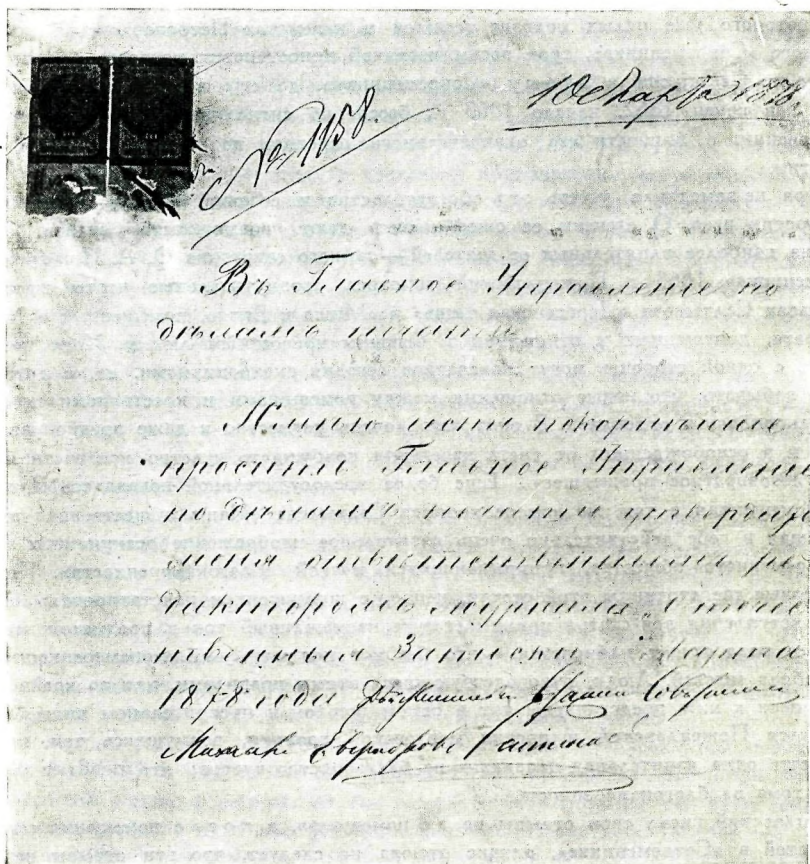 10 Марта 1878.
№ 1158
Въ Главное Управленіе по
дѣламъ печати
Имѣю честь покорнѣйше
просить Главное Управленіе
по дѣламъ печати утвердить
меня отвѣтственнымъ ре
дакторомъ журнала "Отече
ственныя Записки". Марта
1878 года. Дѣйствит. Статскій Совѣтникъ
Михаилъ Евграфовъ Салтыковъ